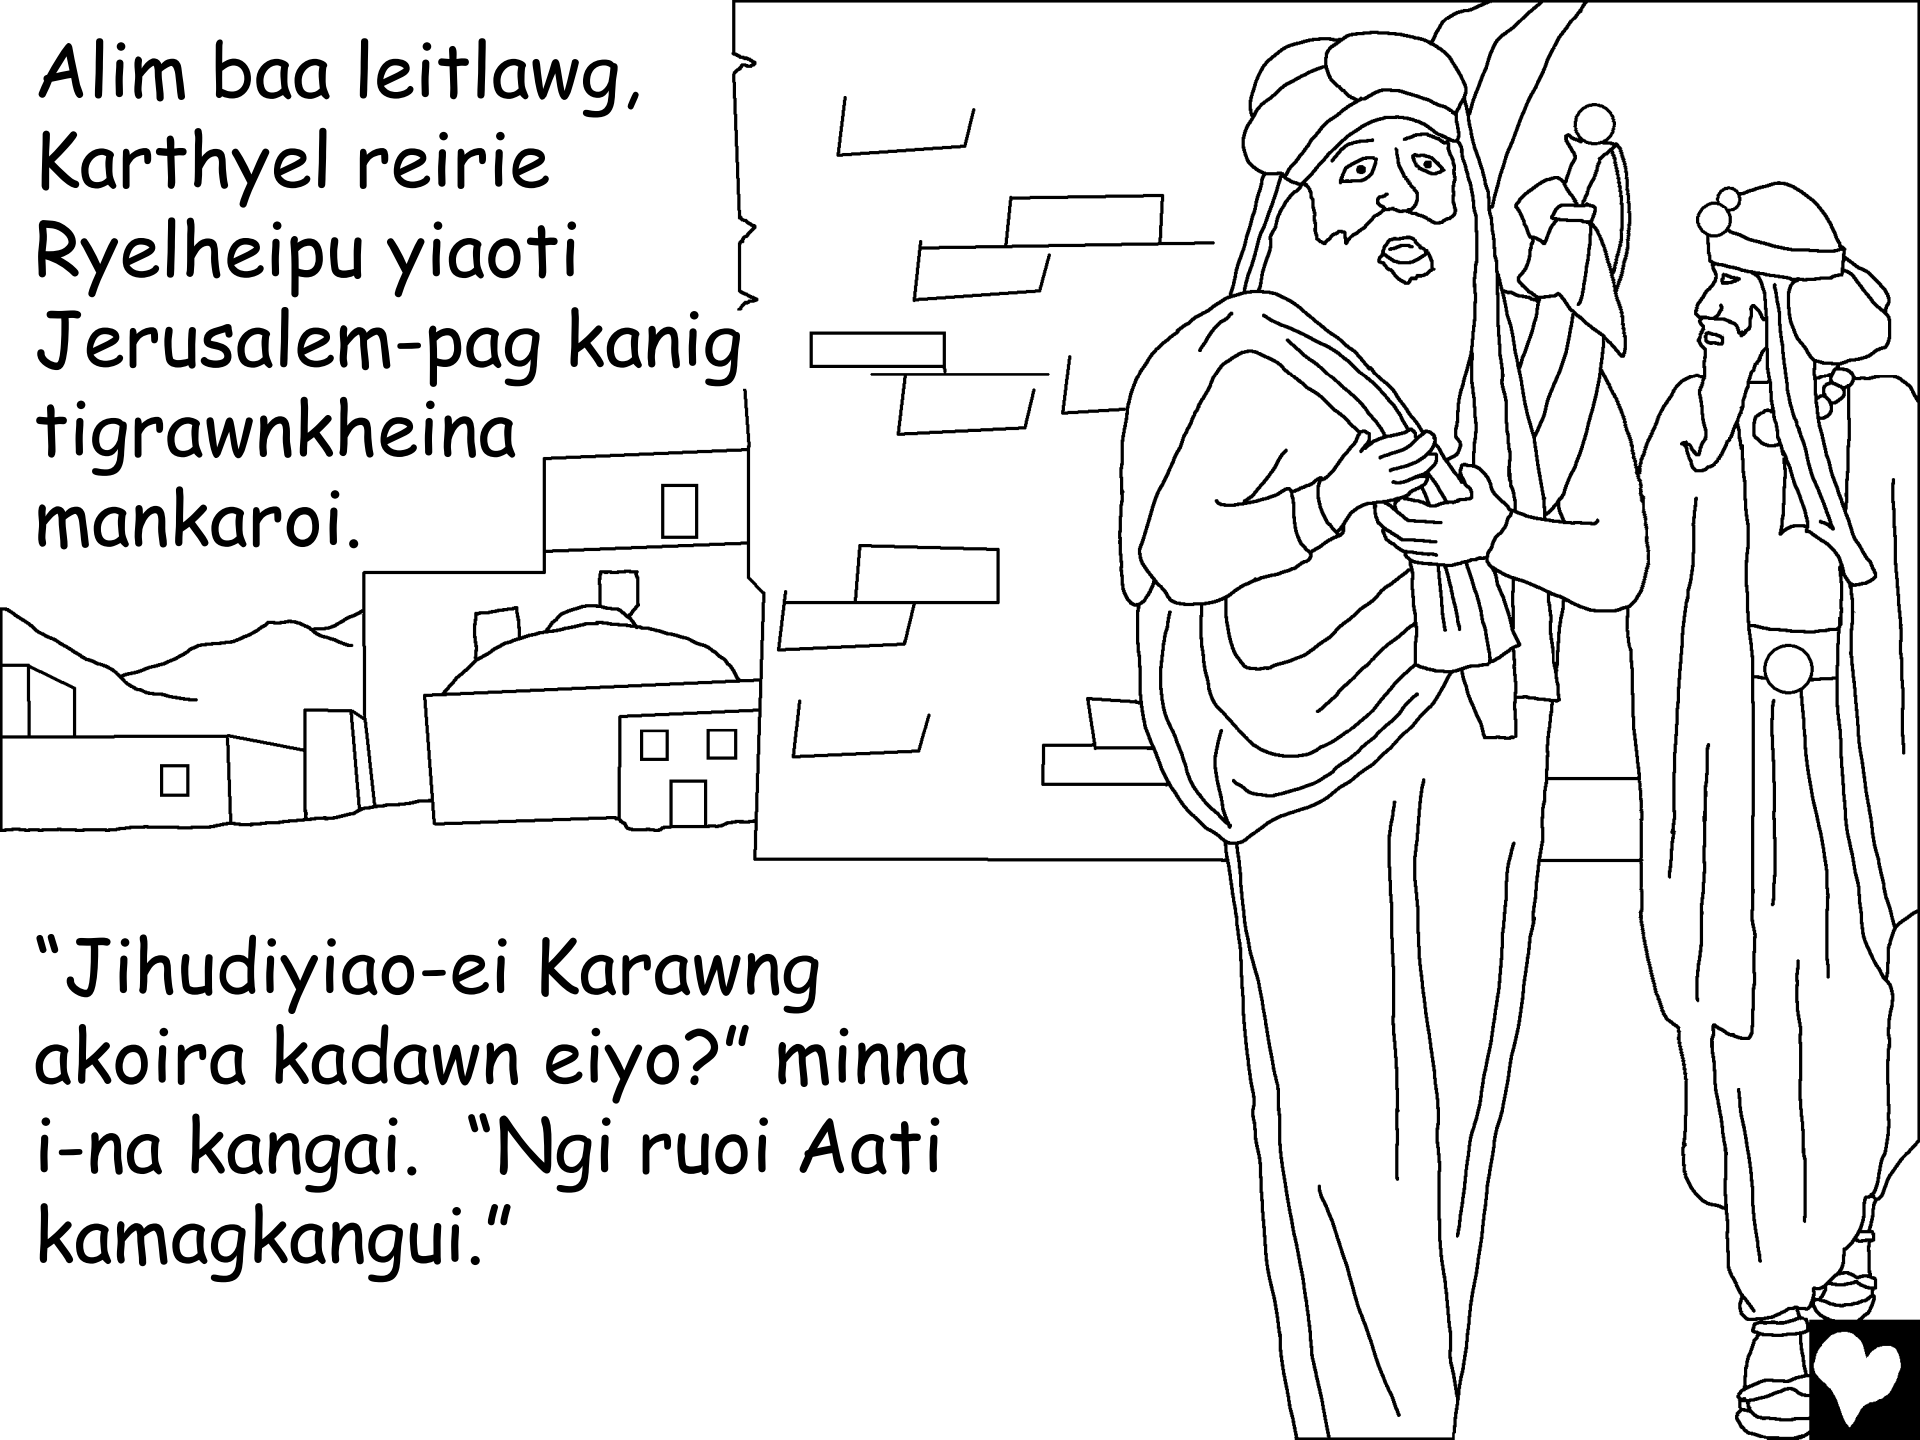 Alim baa leitlawg,
Karthyel reirie
Ryelheipu yiaoti
Jerusalem-pag kanig
tigrawnkheina
mankaroi.
“Jihudiyiao-ei Karawng
akoira kadawn eiyo?” minna
i-na kangai.  “Ngi ruoi Aati
kamagkangui.”